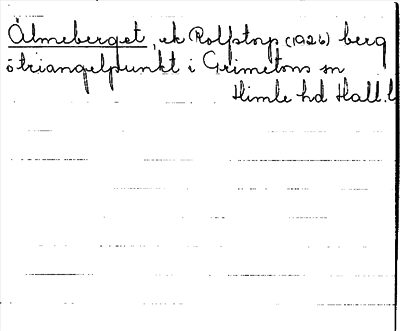 Älmeberget, ek Rolfstorp (1926) berg
o triangelpunkt i Grimetons sn
Himle hd Hall. l